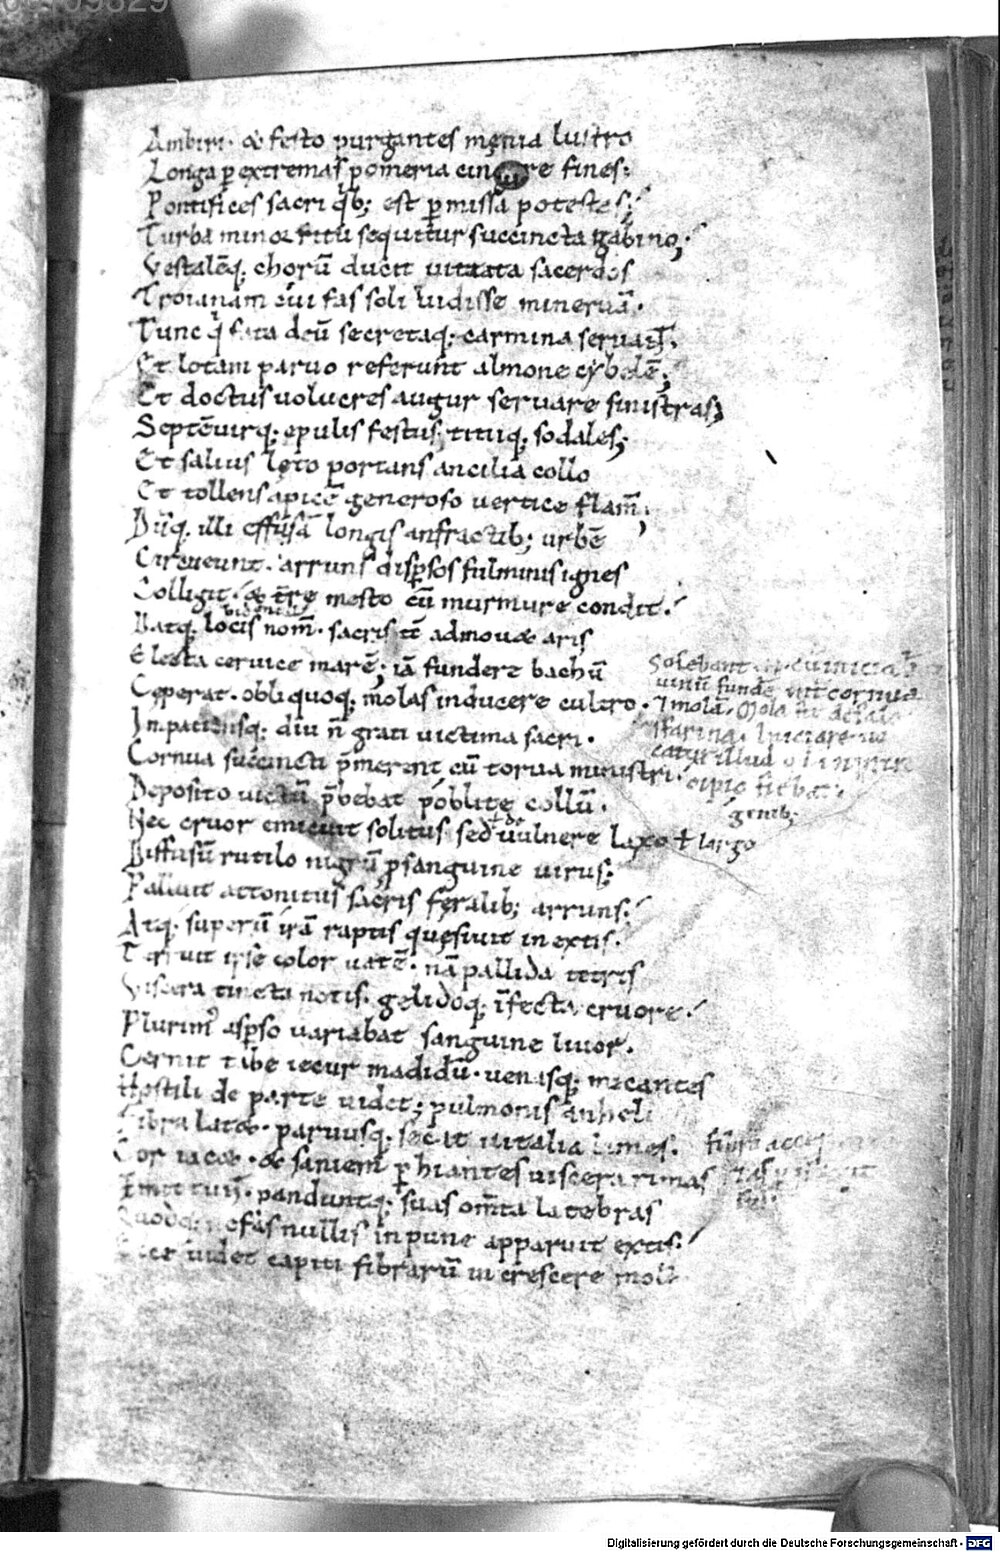 Ambiri. & festo purgantes męnia lustro
Longa ꝑ extremas pomeria cingere fines:
Pontifices sacri qͥb; est ꝑmissa potestas;
Turba minor ritu sequitur succincta gabino;
Vestalēq; chorū ducit uittata sacerdos
Troianam cui fas soli uidisse mineruā.
Tunc qͥ fata deū secretaq; carmina seruant.
Et lotam paruo referunt almone cybelē;
Et doctus uolucres augur seruare sinistras;
Septēuirq; epulis festus; titiiq; sodales;
Et salius lęto portans ancilia collo
Et tollens apicē generoso uertice flam̄;
Dūq; illi effusā longis anfractib; urbē
Circueunt. arruns disꝑsos fulminis ignes
Colligit. & tr̄re mesto cū murmure condit.
Datq; locis nom̄. sacris tc̄ admouet aris
Electa ceruice marē; iā fundere bachū
Ceperat. obliquoq; molas inducere cultro.
Inpatiensq; diu n̄ grati uictima sacri.
Cornua succincti p̄merent cū torua ministri.
Deposito uictū p̄bebat poblite collū.
Nec cruor emicuit solitus. sed uulnere laxo ł largo
Diffusū rutilo nigrū p sanguine uirus;
Palluit attonitus sacris feralib; arruns.
Atq; superū irā raptis quęsiuit in extis.
Terruit ipse color uatē. nā pallida tetris
Viscera tincta notis. gelidoq; īfecta cruore.
Plurimꝰ asꝑso uariabat sanguine liuor.
Cernit tabe iecur madidū. uenasq; micantes
Hostili de parte uidet; pulmonis anheli
Fibra latet. paruusq; secat uitalia limes.
Cor iacet. & saniem ꝑ hiantes uiscera rimas
Emittunt. panduntq; suas om̄ta latebras
Quodq; nefas nullis inpune apparuit extis.
Ecce uidet capiti fibrarū increscere
Solebant
uinū funde
Mola
farina
gentib;